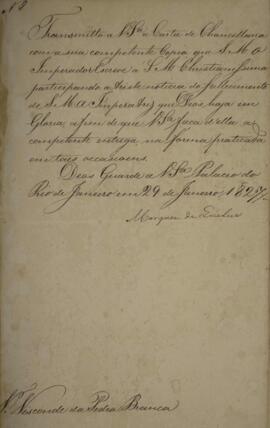 Nº 2
Transmitto a V Sª a Carta de Chancellaria
com a sua competente Copia que S M O
Imperador Escreve a S M Christianissima
participando a triste noticia do fallecimento
de S M A Imperatriz que Deos haja em
Gloria, a fim de que V Sª faça d'ella a
competente entrega, na forma praticada
em taes occasioens.
Deos Guarde a V Sª Palacio do
Rio de Janeiro em 29 de Janeiro, 1827/-
Marquez de
Visconde da Pedra Branca